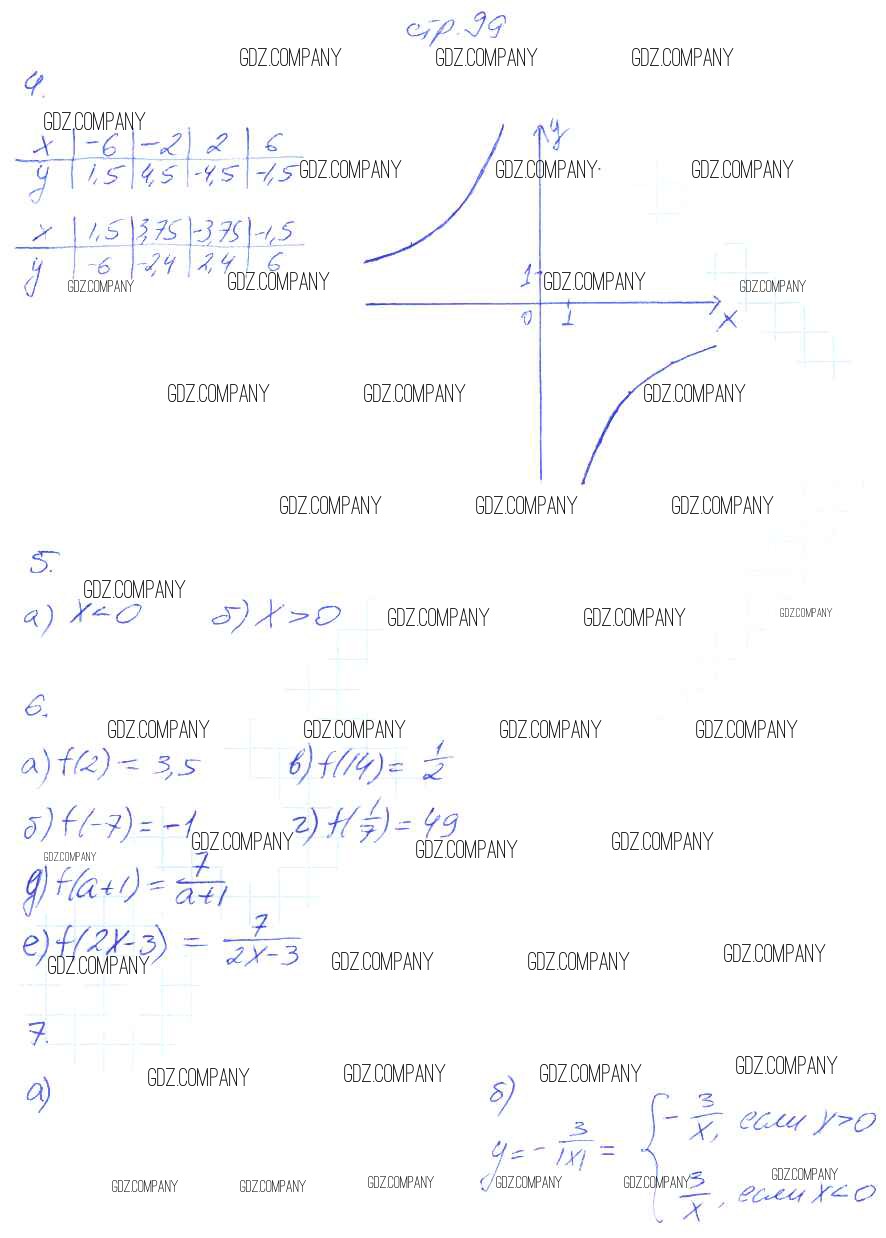 стр. 99
GDZ.COMPANY GDZ.COMPANY GDZ.COMPANY
4.
GDZ.COMPANY
x | -6 | -2 | 2 | 6
y | 1,5 | 4,5 | -4,5 | -1,5
y
GDZ.COMPANY GDZ.COMPANY GDZ.COMPANY
x | 1,5 | 3,75 | -3,75 | -1,5
y | -6 | -2,4 | 2,4 | 6
1
GDZ.COMPANY GDZ.COMPANY GDZ.COMPANY GDZ.COMPANY
0 1 x
GDZ.COMPANY GDZ.COMPANY GDZ.COMPANY
GDZ.COMPANY GDZ.COMPANY GDZ.COMPANY
5.
GDZ.COMPANY
а) x<0 б) x>0
GDZ.COMPANY GDZ.COMPANY GDZ.COMPANY
6.
GDZ.COMPANY GDZ.COMPANY GDZ.COMPANY GDZ.COMPANY
а) f(2) = 3,5 в) f(14) = 1/2
б) f(-7) = -1 г) f(1/7) = 49
GDZ.COMPANY GDZ.COMPANY GDZ.COMPANY GDZ.COMPANY
д) f(a+1) = 7/(a+1)
е) f(2x-3) = 7/(2x-3)
GDZ.COMPANY GDZ.COMPANY GDZ.COMPANY GDZ.COMPANY
7.
GDZ.COMPANY GDZ.COMPANY GDZ.COMPANY GDZ.COMPANY
а) б)
y = - 3/|x| = { - 3/x, если x>0
3/x, если x<0
GDZ.COMPANY GDZ.COMPANY GDZ.COMPANY GDZ.COMPANY GDZ.COMPANY GDZ.COMPANY